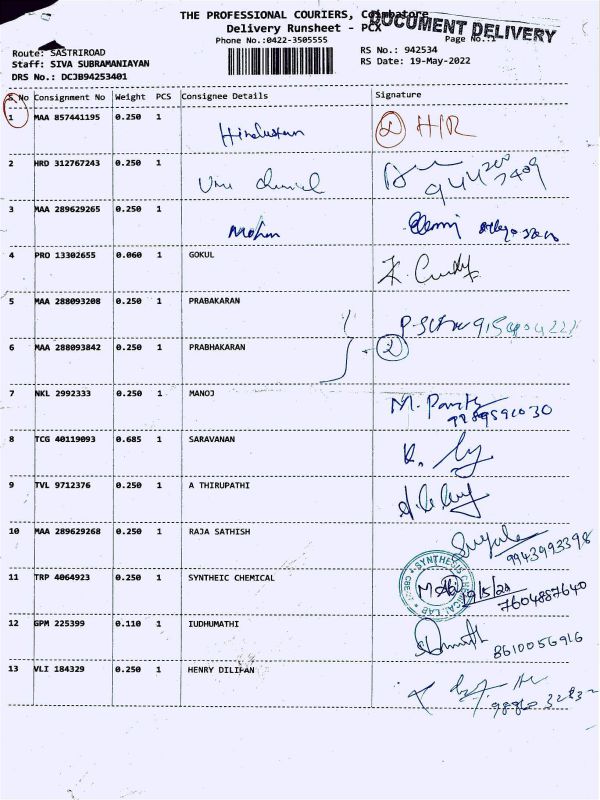 THE PROFESSIONAL COURIERS, Coimbatore
Delivery Runsheet - PCX
DOCUMENT DELIVERY
Phone No.:0422-3505555
Page No.:1
Route: SASTRIROAD
RS No.: 942534
Staff: SIVA SUBRAMANIAYAN
RS Date: 19-May-2022
DRS No.: DCJB94253401
S No Consignment No Weight PCS Consignee Details Signature
1 MAA 857441195 0.250 1 Hindustan 2 H/R
2 HRD 312767243 0.250 1
3 MAA 289629265 0.250 1 Mohan
4 PRO 13302655 0.060 1 GOKUL
5 MAA 288093208 0.250 1 PRABAKARAN
6 MAA 288093842 0.250 1 PRABHAKARAN 2
7 NKL 2992333 0.250 1 MANOJ
8 TCG 40119093 0.685 1 SARAVANAN
9 TVL 9712376 0.250 1 A THIRUPATHI
10 MAA 289629268 0.250 1 RAJA SATHISH 9943993398
11 TRP 4064923 0.250 1 SYNTHEIC CHEMICAL SYNTHESIS CHEMICAL LAB 7604887640
12 GPM 225399 0.110 1 IUDHUMATHI 8610056916
13 VLI 184329 0.250 1 HENRY DILIPAN